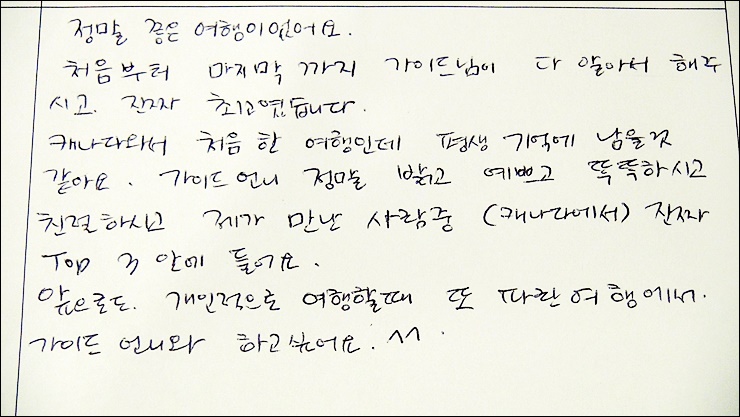 정말 좋은 여행이었어요.
처음부터 마지막 까지 가이드님이 다 알아서 해주
시고. 진짜 최고였습니다.
캐나다와서 처음 한 여행인데 평생 기억에 남을것
같아요. 가이드 언니 정말 밝고 예쁘고 똑똑하시고
친절하시고 제가 만난 사람중 (캐나다에서) 진짜
Top 3 안에 들어요.
앞으로도. 개인적으로 여행할때 또 다른 여행에서.
가이드 언니와 하고싶어요. ^^.